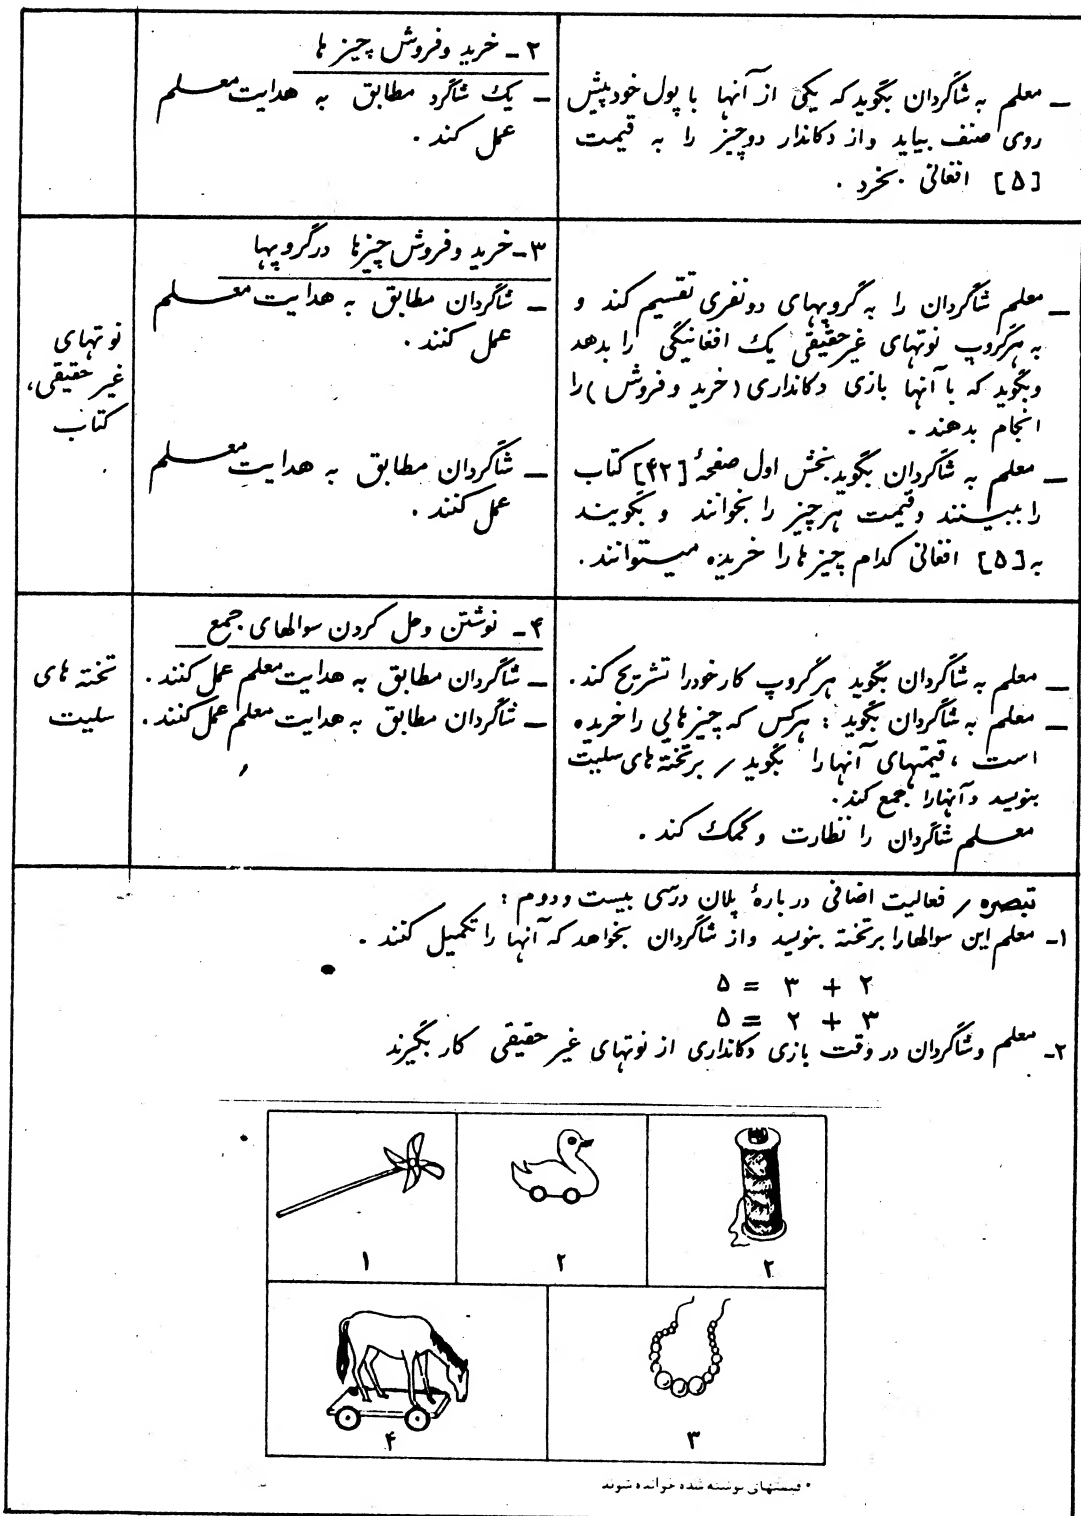 ۲- خرید وفروش چیز ها
ـ معلم به شاگردان بگوید که یکی از آنها با پول خود پیش
روی صنف بیاید واز دکاندار دوچیز را به قیمت
[۵] افغانی بخرد .
ـ یک شاگرد مطابق به هدایت معلم
عمل کند .
۳-خرید وفروش چیزها درگروپها
ـ معلم شاگردان را به گروپهای دونفری تقسیم کند و
به هرگروپ نوتهای غیرحقیقی یک افغانیگی را بدهد
وبگوید که با آنها بازی دکانداری (خرید وفروش) را
انجام بدهند .
ـ معلم به شاگردان بگوید بخش اول صفحهٔ [۴۲] کتاب
را ببینند وقیمت هرچیز را بخوانند و بگویند
به [۵] افغانی کدام چیز ها را خریده میتوانند .
ـ شاگردان مطابق به هدایت معلم
عمل کنند .
ـ شاگردان مطابق به هدایت معلم
عمل کنند .
نوتهای
غیر حقیقی،
کتاب
۴- نوشتن وحل کردن سوالهای جمع
ـ معلم به شاگردان بگوید هرگروپ کار خودرا تشریح کند .
ـ معلم به شاگردان بگوید : هرکس که چیزهایی را خریده
است ، قیمتهای آنها را بگوید / برتخته های سلیت
بنویسد وآنهارا جمع کند.
معلم شاگردان را نظارت و کمک کند .
ـ شاگردان مطابق به هدایت معلم عمل کنند .
ـ شاگردان مطابق به هدایت معلم عمل کنند .
تخته های
سلیت
تبصره / فعالیت اضافی در بارهٔ پلان درسی بیست ودوم :
۱- معلم این سوالهارا برتخته بنویسد واز شاگردان بخواهد که آنها را تکمیل کنند .
۲ + ۳ = ۵
۳ + ۲ = ۵
۲- معلم وشاگردان در وقت بازی دکانداری از نوتهای غیر حقیقی کار بگیرند
۲
۲
۱
۳
۴
* قیمتهای نوشته شده خوانده شوند